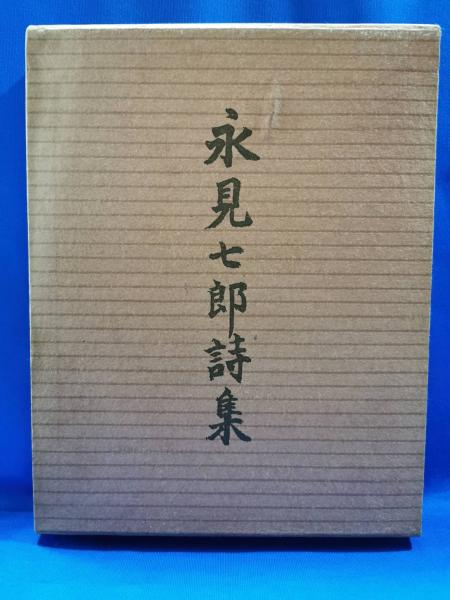 永見七郎詩集